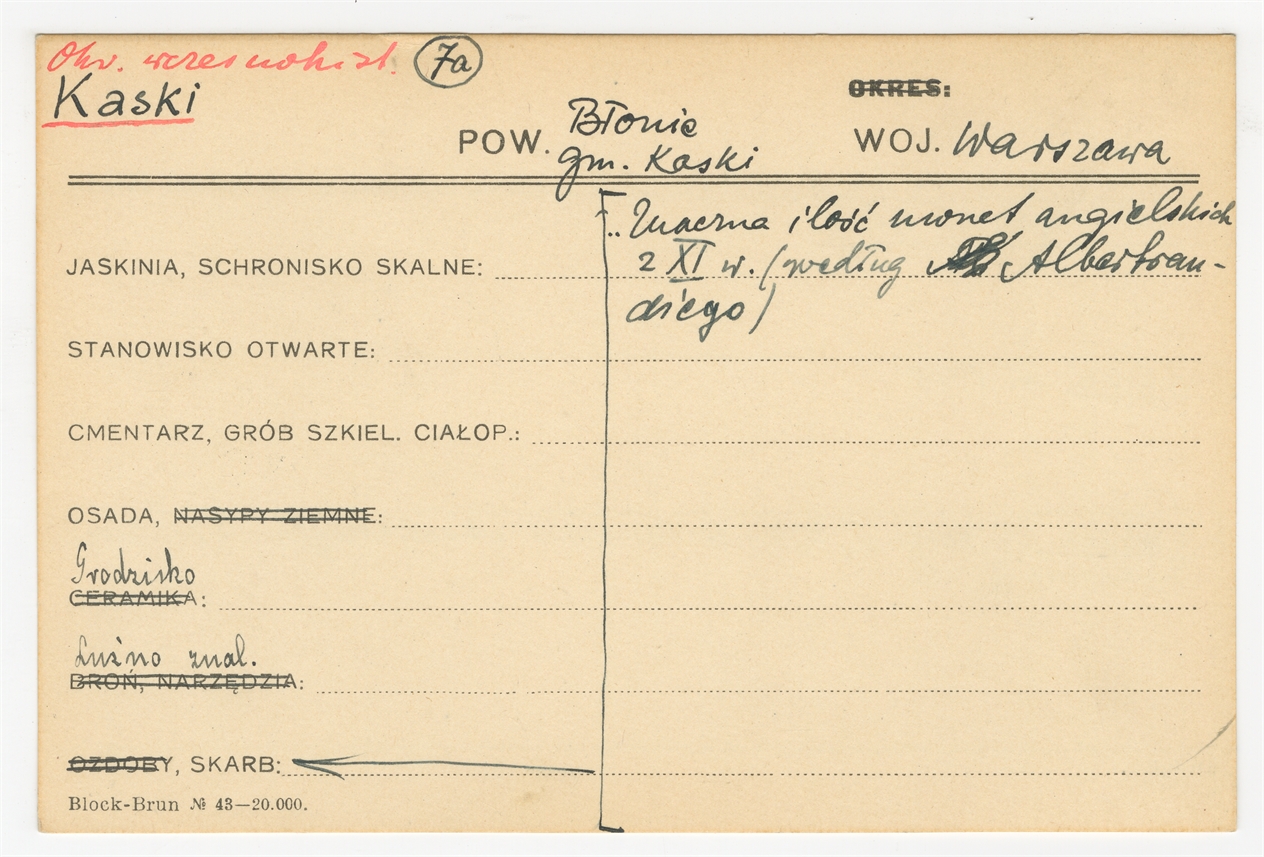 Okr. wczesnohist. 7a
Kaski
OKRES:
POW. Błonie WOJ. Warszawa
gm. Kaski
„Znaczna ilość monet angielskich
JASKINIA, SCHRONISKO SKALNE: z XI w. (według Albertran-
diego)
STANOWISKO OTWARTE:
CMENTARZ, GRÓB SZKIEL. CIAŁOP.:
OSADA, NASYPY ZIEMNE:
Grodzisko
CERAMIKA:
Luźno znal.
BROŃ, NARZĘDZIA:
OZDOBY, SKARB:
Block-Brun № 43—20.000.